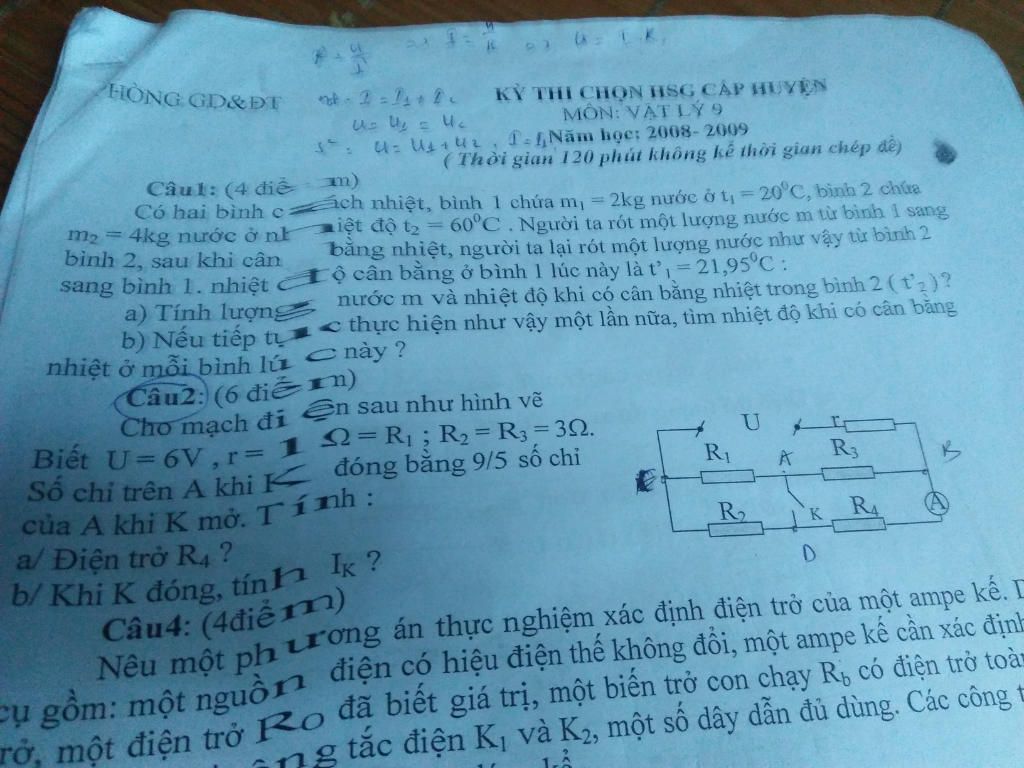 I = U/R => U = I.R
HÒNG GD&ĐT
KỲ THI CHỌN HSG CẤP HUYỆN
nt: I = I1 + I2
MÔN: VẬT LÝ 9
U = U1 = U2
Năm học: 2008- 2009
U = U1 + U2
( Thời gian 120 phút không kể thời gian chép đề)
Câu1: (4 điểm)
Có hai bình cách nhiệt, bình 1 chứa m₁ = 2kg nước ở t₁ = 20⁰C, bình 2 chứa
m₂ = 4kg nước ở nhiệt độ t₂ = 60⁰C . Người ta rót một lượng nước m từ bình 1 sang
bình 2, sau khi cân bằng nhiệt, người ta lại rót một lượng nước như vậy từ bình 2
sang bình 1. nhiệt độ cân bằng ở bình 1 lúc này là t'₁ = 21,95⁰C :
a) Tính lượng nước m và nhiệt độ khi có cân bằng nhiệt trong bình 2 ( t'₂ ) ?
b) Nếu tiếp tục thực hiện như vậy một lần nữa, tìm nhiệt độ khi có cân bằng
nhiệt ở mỗi bình lúc này ?
Câu2: (6 điểm)
Cho mạch điện sau như hình vẽ
Biết U = 6V , r = 1Ω = R₁ ; R₂ = R₃ = 3Ω.
Số chỉ trên A khi K đóng bằng 9/5 số chỉ
của A khi K mở. Tính :
a/ Điện trở R₄ ?
b/ Khi K đóng, tính I_K ?
U r
R₁ A R₃ B
R₂ K R₄ A
D
Câu4: (4điểm)
Nêu một phương án thực nghiệm xác định điện trở của một ampe kế. D
cụ gồm: một nguồn điện có hiệu điện thế không đổi, một ampe kế cần xác định
trở, một điện trở R₀ đã biết giá trị, một biến trở con chạy R_b có điện trở toàn
công tắc điện K₁ và K₂, một số dây dẫn đủ dùng. Các công t